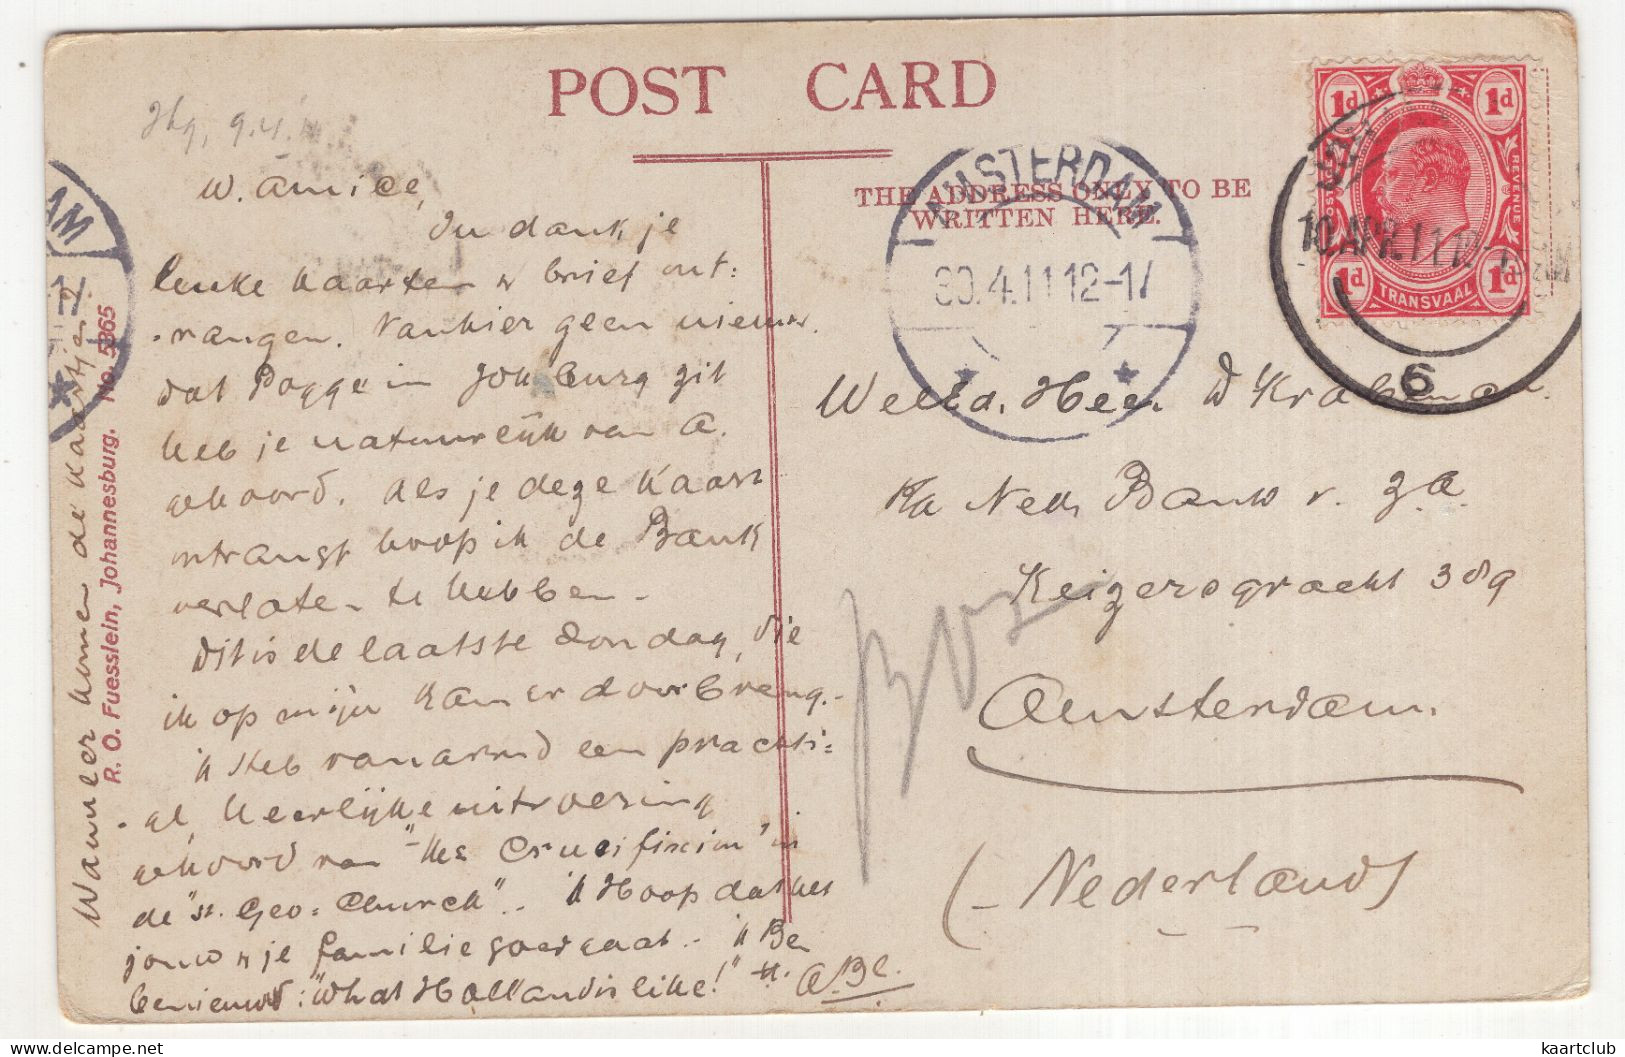 POST CARD
THE ADDRESS ONLY TO BE
WRITTEN HERE.
Jhg, 9.4.11
W. Amice,
Nu dank je
leuke kaarten & brief ont:
vangen. Van hier geen nieuws.
dat Pogge in Joh'burg zit
heb je natuurlijk van A.
gehoord. Als je deze kaart
ontvangt hoop ik de Bank
verlaten te hebben.
Dit is de laatste Zondag, die
ik op mijn kamer doorbreng.
'k Heb vanavond een prachti=
ge, heerlijke uitvoering
gehoord van "the Crucifixion" in
de "St. Geo: Church". 'k Hoop dat het
jou & je familie goed gaat. 'k Ben
benieuwd: "What Holland is like!" t.t. A.Bl.
Wanneer komen de kaartjes?
R. O. Fuesslein, Johannesburg. No. 5365
AM
AMSTERDAM
30.4.11 12-1
10 APR 11
6
1d 1d
POSTAGE REVENUE
1d TRANSVAAL 1d
WelEd. Heer
Ka Ned. Bank v. Z.A.
Keizersgracht 389
Amsterdam.
(Nederland)
kaartclub